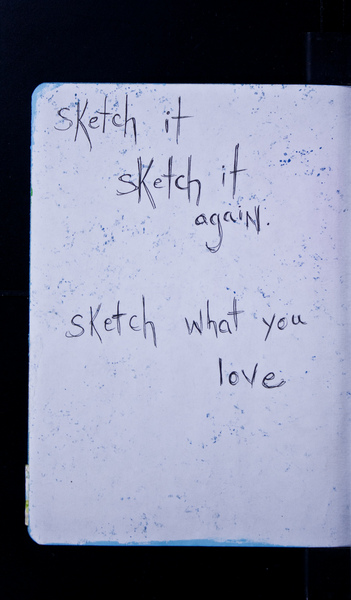 sketch it
sketch it
again.
sketch what you
love